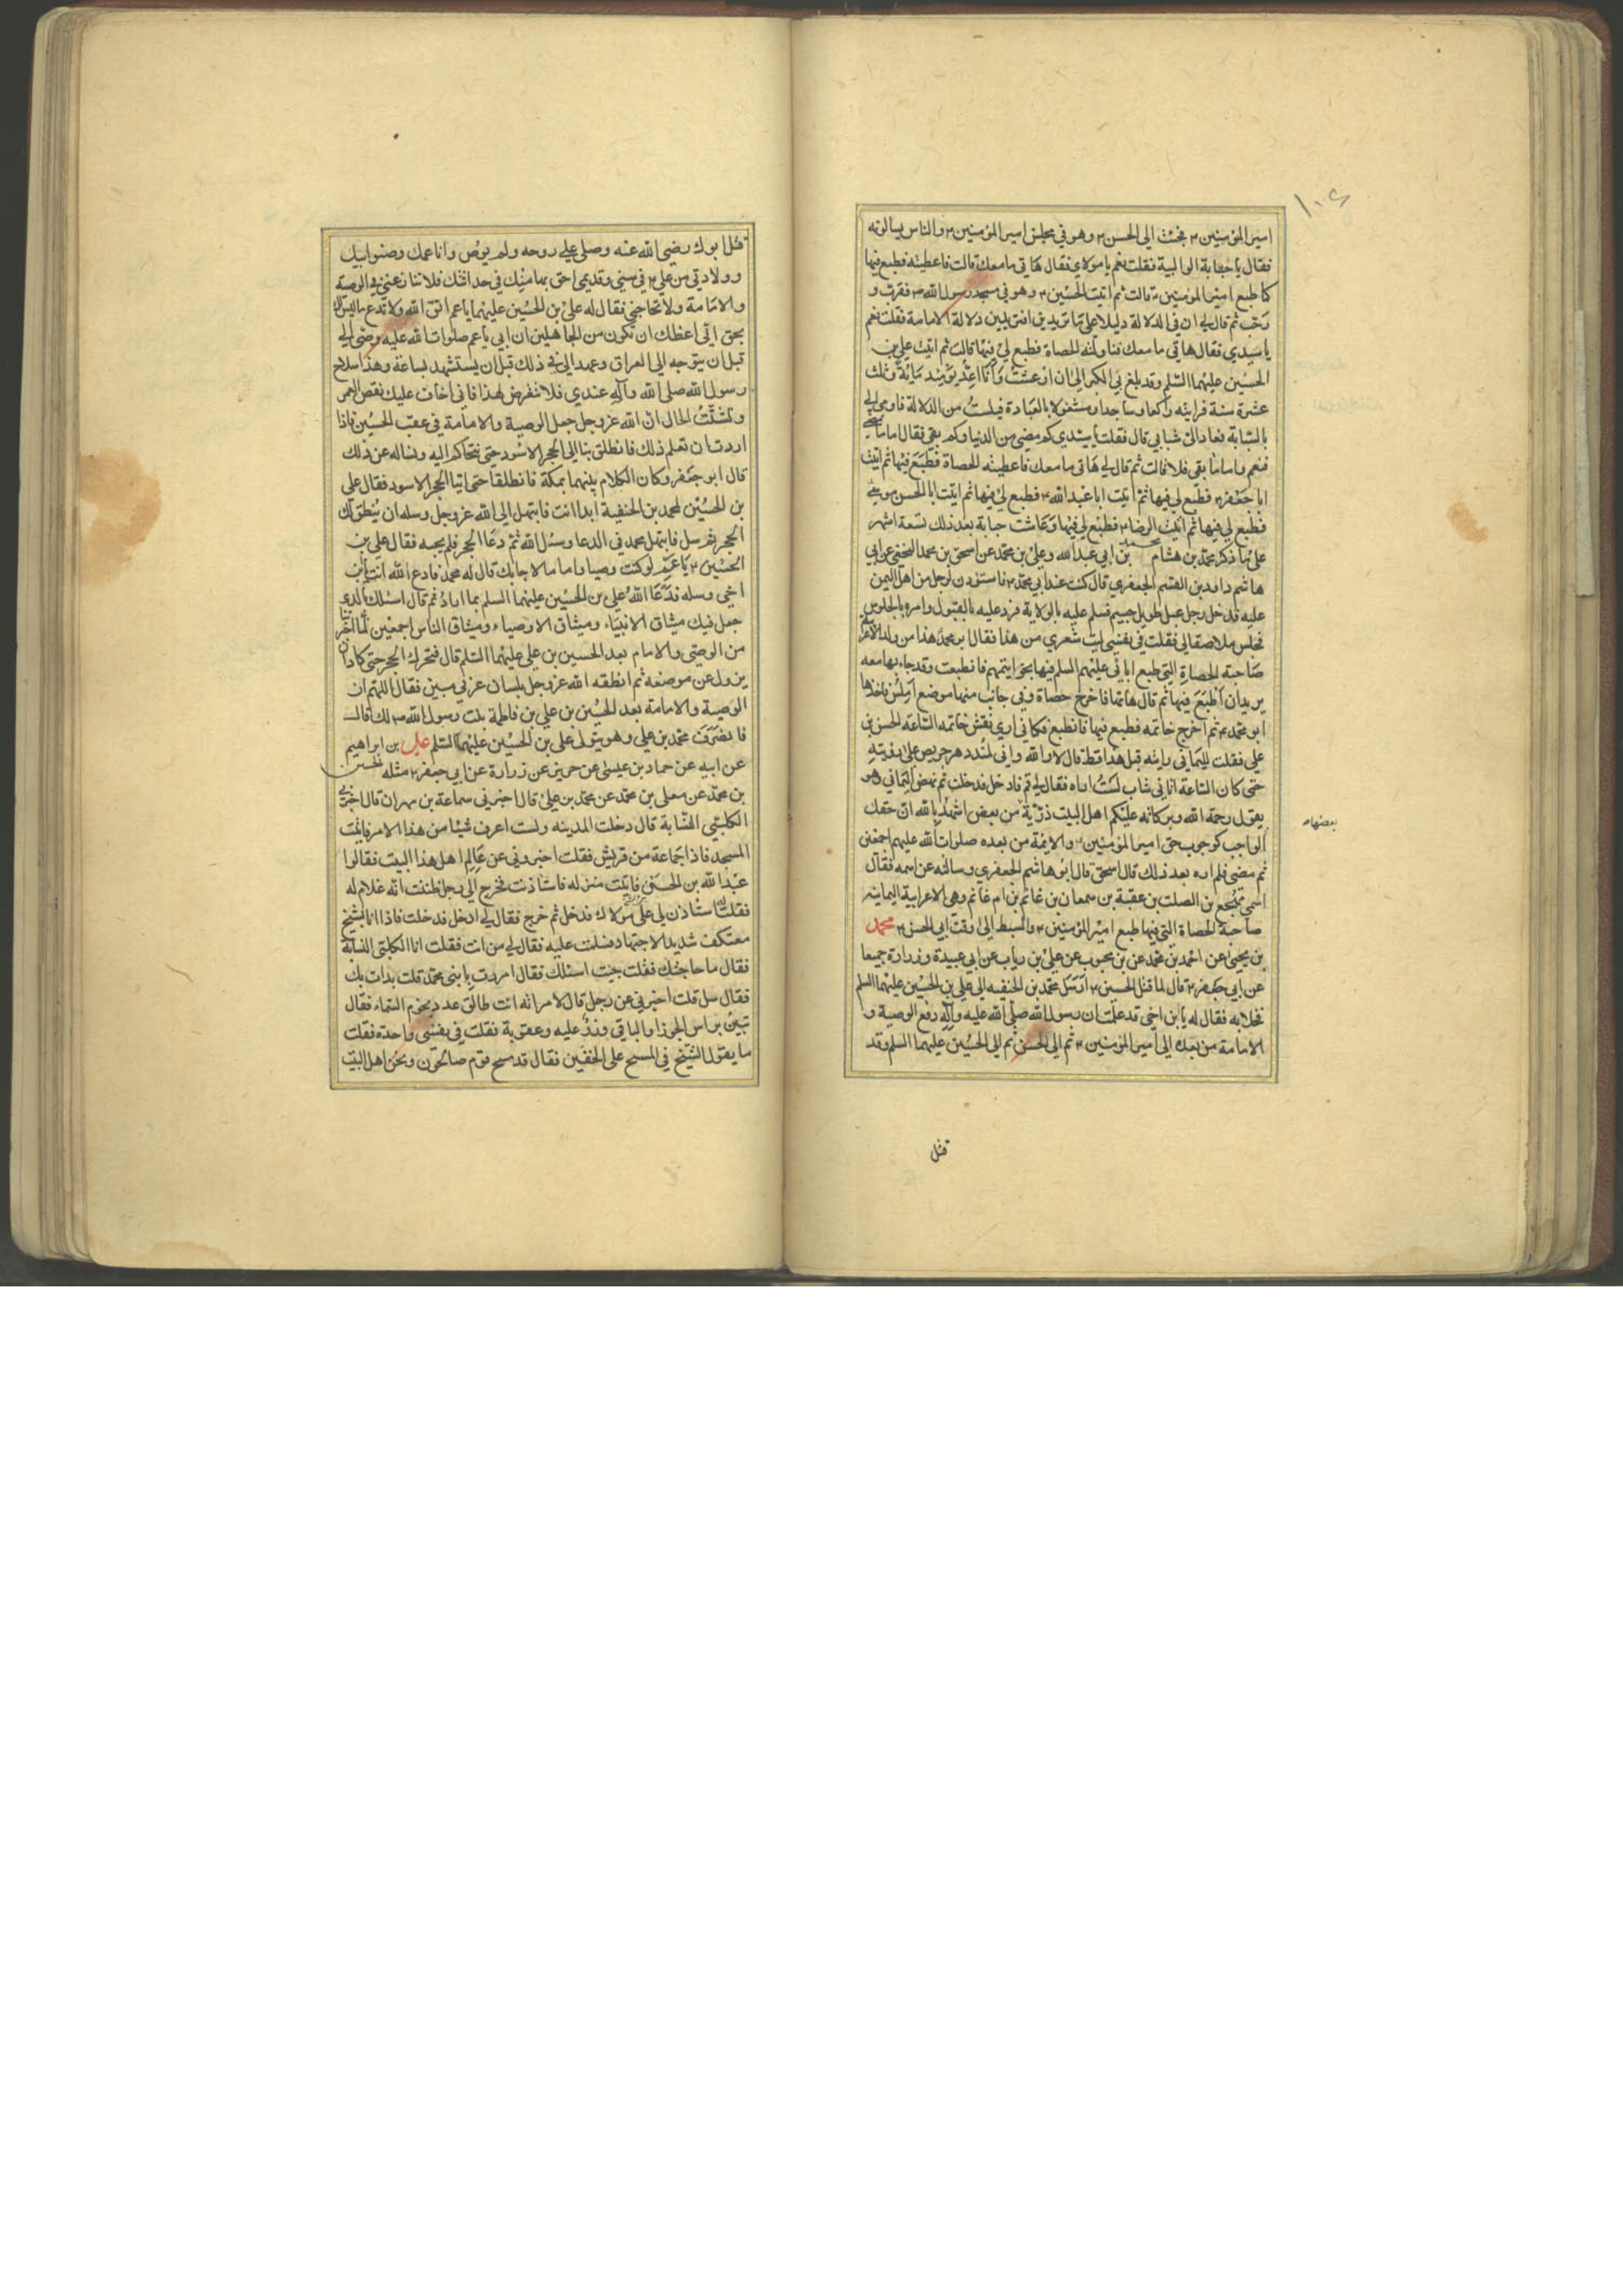 ١٠٤
امير المؤمنين ٣ فجئت الى الحسن ٣ وهو في مجلس امير المؤمنين ٣ والناس يسالونه
فقال يا حبابة الوالبية فقلت نعم يا مولاي فقال هاتي ما معك قالت فاعطيته فطبع فيها
كما طبع امير المؤمنين ٣ قالت ثم اتيت الحسين ٣ وهو في مسجد رسول الله ص فقرب و
رحب ثم قال لي ان في الدلالة دليلا على ما تريدين افتريدين دلالة الامامة فقلت نعم
يا سيدي فقال هاتي ما معك فناولته الحصاة فطبع لي فيها قالت ثم اتيت علي بن
الحسين عليهما السلم وقد بلغ بي الكبر الى ان ارعشت وانا اعد يومئذ مائة وثلث
عشرة سنة فرايته راكعا وساجدا ومشغولا بالعبادة فيئست من الدلالة فاومى الي
بالسبابة فعاد الي شبابي قال فقلت يا سيدي كم مضى من الدنيا وكم بقي فقال اما ما مضى
فنعم واما ما بقي فلا قالت ثم قال لي هاتي ما معك فاعطيته الحصاة فطبع فيها ثم اتيت
ابا جعفر ٣ فطبع لي فيها ثم اتيت ابا عبد الله ٣ فطبع لي فيها ثم اتيت ابا الحسن موسى
فطبع لي فيها ثم اتيت الرضا ٣ فطبع لي فيها وعاشت حبابة بعد ذلك تسعة اشهر
على ما ذكر محمد بن هشام محمد بن ابي عبد الله وعلي بن محمد عن اسحق بن محمد النخعي عن ابي
هاشم داود بن القسم الجعفري قال كنت عند ابي محمد ٣ فاستوذن لرجل من اهل اليمن
عليه فدخل رجل عبل طويل جسيم فسلم عليه بالولاية فرد عليه بالقبول وامره بالجلوس
فجلس ملاصقا لي فقلت في نفسي ليت شعري من هذا فقال ابو محمد هذا من ولد الاعرابية
صاحبة الحصاة التي طبع ابائي عليهم السلم فيها بخواتيمهم فانطبعت وقد جاء بها معه
يريد ان اطبع فيها ثم قال هاتها فاخرج حصاة وفي جانب منها موضع املس فاخذها
ابو محمد ٣ ثم اخرج خاتمه فطبع فيها فانطبع فكاني ارى نقش خاتمه الساعة الحسن بن
علي فقلت لليماني رايته قبل هذا قط قال لا والله واني لمنذ دهر حريص على رؤيته
حتى كان الساعة اتاني شاب لست اراه فقال لي قم فادخل فدخلت ثم نهض اليماني وهو
يقول رحمة الله وبركاته عليكم اهل البيت ذرية من بعض اشهد بالله ان حقك
بعضها
الواجب كوجوب حق امير المؤمنين ٣ والائمة من بعده صلوات الله عليهم اجمعين
ثم مضى فلم اره بعد ذلك قال اسحق قال ابو هاشم الجعفري وسالته عن اسمه فقال
اسمي مهجع بن الصلت بن عقبة بن سمعان بن غانم بن ام غانم وهي الاعرابية اليمانية
صاحبة الحصاة التي فيها طبع امير المؤمنين ٣ والسبط الى وقت ابي الحسن ٣ محمد
بن يحيى عن احمد بن محمد عن بن محبوب عن علي بن رياب عن ابي عبيدة وزرارة جميعا
عن ابي جعفر ٣ قال لما قتل الحسين ٣ ارسل محمد بن الحنفيه الى علي بن الحسين عليهما السلم
فخلا به فقال له يا بن اخي قد علمت ان رسول الله صلى الله عليه وآله دفع الوصية و
الامامة من بعده الى امير المؤمنين ٣ ثم الى الحسن ثم الى الحسين عليهما السلم وقد
قتل
قتل ابوك رضي الله عنه وصلى على روحه ولم يوص وانا عمك وصنو ابيك
وولادتي من علي ٣ في سني وقديمي احق بها منك في حداثتك فلا تنازعني في الوصية
والامامة ولا تحاجني فقال له علي بن الحسين عليهما يا عم اتق الله ولا تدع ما ليس لك
بحق اني اعظك ان تكون من الجاهلين ان ابي يا عم صلوات الله عليه وصى الي
قبل ان يتوجه الى العراق وعهد الي في ذلك قبل ان يستشهد بساعة وهذا سلاح
رسول الله صلى الله وآله عندي فلا تتعرض لهذا فاني اخاف عليك نقص العمر
وتشتت الحال ان الله عز وجل جعل الوصية والامامة في عقب الحسين فاذا
اردت ان تعلم ذلك فانطلق بنا الى الحجر الاسود حتى نتحاكم اليه ونساله عن ذلك
قال ابو جعفر وكان الكلام بينهما بمكة فانطلقا حتى اتيا الحجر الاسود فقال علي
بن الحسين لمحمد بن الحنفية ابدا انت فابتهل الى الله عز وجل وسله ان ينطق لك
الحجر ثم سل فابتهل محمد في الدعا وسئل الله ثم دعا الحجر فلم يجبه فقال علي بن
الحسين ٣ يا عم لو كنت وصيا واماما لاجابك قال له محمد فادع الله انت يا بن
اخي وسله فدعا الله علي بن الحسين عليهما السلم بما اراد ثم قال اسئلك بالذي
جعل فيك ميثاق الانبياء وميثاق الاوصياء وميثاق الناس اجمعين لما اخبرتنا
من الوصي والامام بعد الحسين بن علي عليهما السلم قال فتحرك الحجر حتى كاد ان
يزول عن موضعه ثم انطقه الله عز وجل بلسان عربي مبين فقال اللهم ان
الوصية والامامة بعد الحسين بن علي بن فاطمة بنت رسول الله ص لك قال
فانصرف محمد بن علي وهو يتولى علي بن الحسين عليهما السلم علي بن ابراهيم
عن ابيه عن حماد بن عيسى عن حريز عن زرارة عن ابي جعفر ٣ مثله الحسين
بن محمد عن معلى بن محمد عن محمد بن علي قال اخبرني سماعة بن مهران قال اخبرني
الكلبي النسابة قال دخلت المدينه ولست اعرف شيئا من هذا الامر فاتيت
المسجد فاذا جماعة من قريش فقلت اخبروني عن عالم اهل هذا البيت فقالوا
عبد الله بن الحسن فاتيت منزله فاستاذنت فخرج الي رجل ظننت انه غلام له
فقلت له استاذن لي على مولاك فدخل ثم خرج فقال لي ادخل فدخلت فاذا انا بشيخ
معتكف شديد الاجتهاد فسلمت عليه فقال لي من انت فقلت انا الكلبي النسابة
فقال ما حاجتك فقلت جيت اسئلك فقال امررت بابني محمد قلت بدات بك
فقال سل قلت اخبرني عن رجل قال لامراته انت طالق عدد نجوم السماء فقال
تبين براس الجوزا والباقي وزر عليه وعقوبة فقلت في نفسي واحدة فقلت
ما يقول الشيخ في المسح على الخفين فقال قد مسح قوم صالحون ونحن اهل البيت